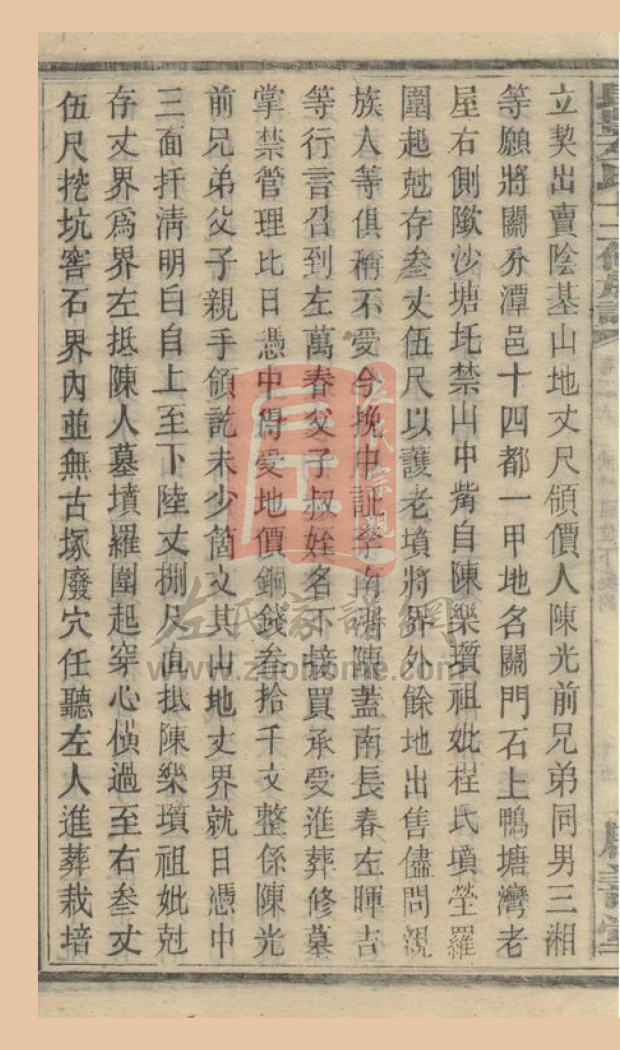 立契出賣陰基山地丈尺領價人陳光前兄弟同男三湘
等願將關分潭邑十四都一甲地名關門石上鴨塘灣老
屋右側陰沙塘坵禁山中嘴自陳樂瓚祖妣程氏墳塋羅
圍起尅存叁丈伍尺以護老墳將界外餘地出售儘問親
族人等俱稱不受今挽中証李南陳蓋南長春左暉吉
等行言召到左萬春父子叔姪名下接買承受進葬修墓
掌禁管理比日憑中得受地價銅錢叁拾千文整係陳光
前兄弟父子親手領訖未少箇文其山地丈界就日憑中
三面扦清明白自上至下陸丈捌尺直抵陳樂瓚祖妣尅
存丈界爲界左抵陳人墓墳羅圍起穿心橫過至右叁丈
伍尺挖坑窖石界內並無古塚廢穴任聽左人進葬栽培
左氏家譜網
www.zuohome.com